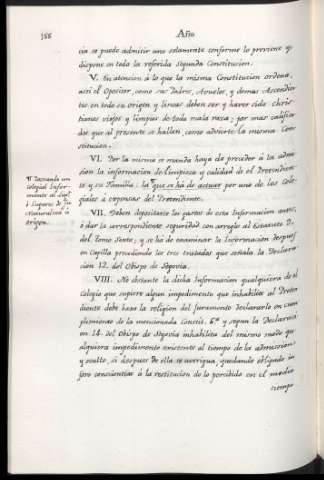 188
Año
cia se puede admitir uno solamente conforme lo previene y
dispone en todo la referida segunda Constitucion.
V. En atencion á lo que la misma Constitucion ordena,
assi el Opositor, como sus Padres, Abuelos, y demas Ascendien-
tes en todo su origen y lineas deben ser y haver sido chris-
tianos viejos y limpios de toda mala raza; por mas califica-
dos que al presente se hallen, como advierte la misma Cons-
titucion.
VI. Por la misma se manda haya de preceder á la admi-
sion la informacion de limpieza y calidad de el Pretendien-
te y su Familia: la que se há de actuar por uno de los Cole-
giales á expensas del Pretendiente.
Tocando un
Colegial Infor-
mante
naturaleza ú
origen.
VII. Deben depositarse los gastos de esta Informacion antes,
ó dar la correspondiente seguridad con arreglo al Estatuto D.
del Tomo Santo; y se há de examinar la Informacion despues
en Capilla precediendo los tres tratados que señala la Declara-
cion 12. del Obispo de Segovia.
VIII. No obstante la dicha Informacion qualquiera de el
Colegio que supiere algun impedimento que inhabilite al Preten-
diente debe baxo la religion del Juramento declararlo en cum-
plimiento de la mencionada Constit. 6.ª y segun la Declaracion
14. del Obispo de Segovia inhabilita del mismo modo qua-
lquiera impedimento existente al tiempo de la admission
y oculto, si despues de ella se averigua, quedando obligado in
foro conscientiae á la restitucion de lo percibido en el medio
tiempo